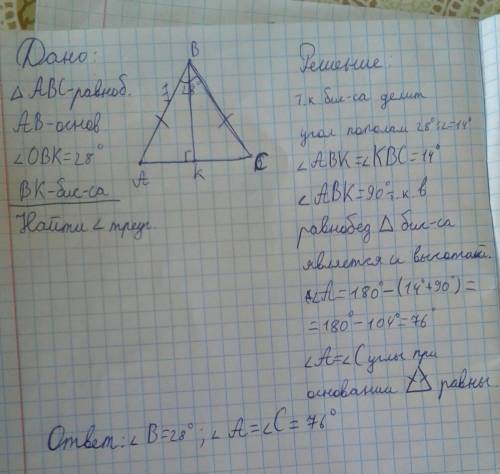 Дано:
△ ABC-равноб.
AB-основ
∠OBK=28°
BK-бис-са
Найти ∠ треуг.
B
28°
A
K
C
Решение:
т.к бис-са делит
угол пополам 28°:2=14°
∠ABK=∠KBC=14°
∠ABK=90° т.к в
равнобед. △ бис-са
является и высотой.
∠A=180°-(14°+90°)=
=180°-104°=76°
∠A=∠C углы при
основании △ равны.
Ответ: ∠B=28°; ∠A=∠C=76°